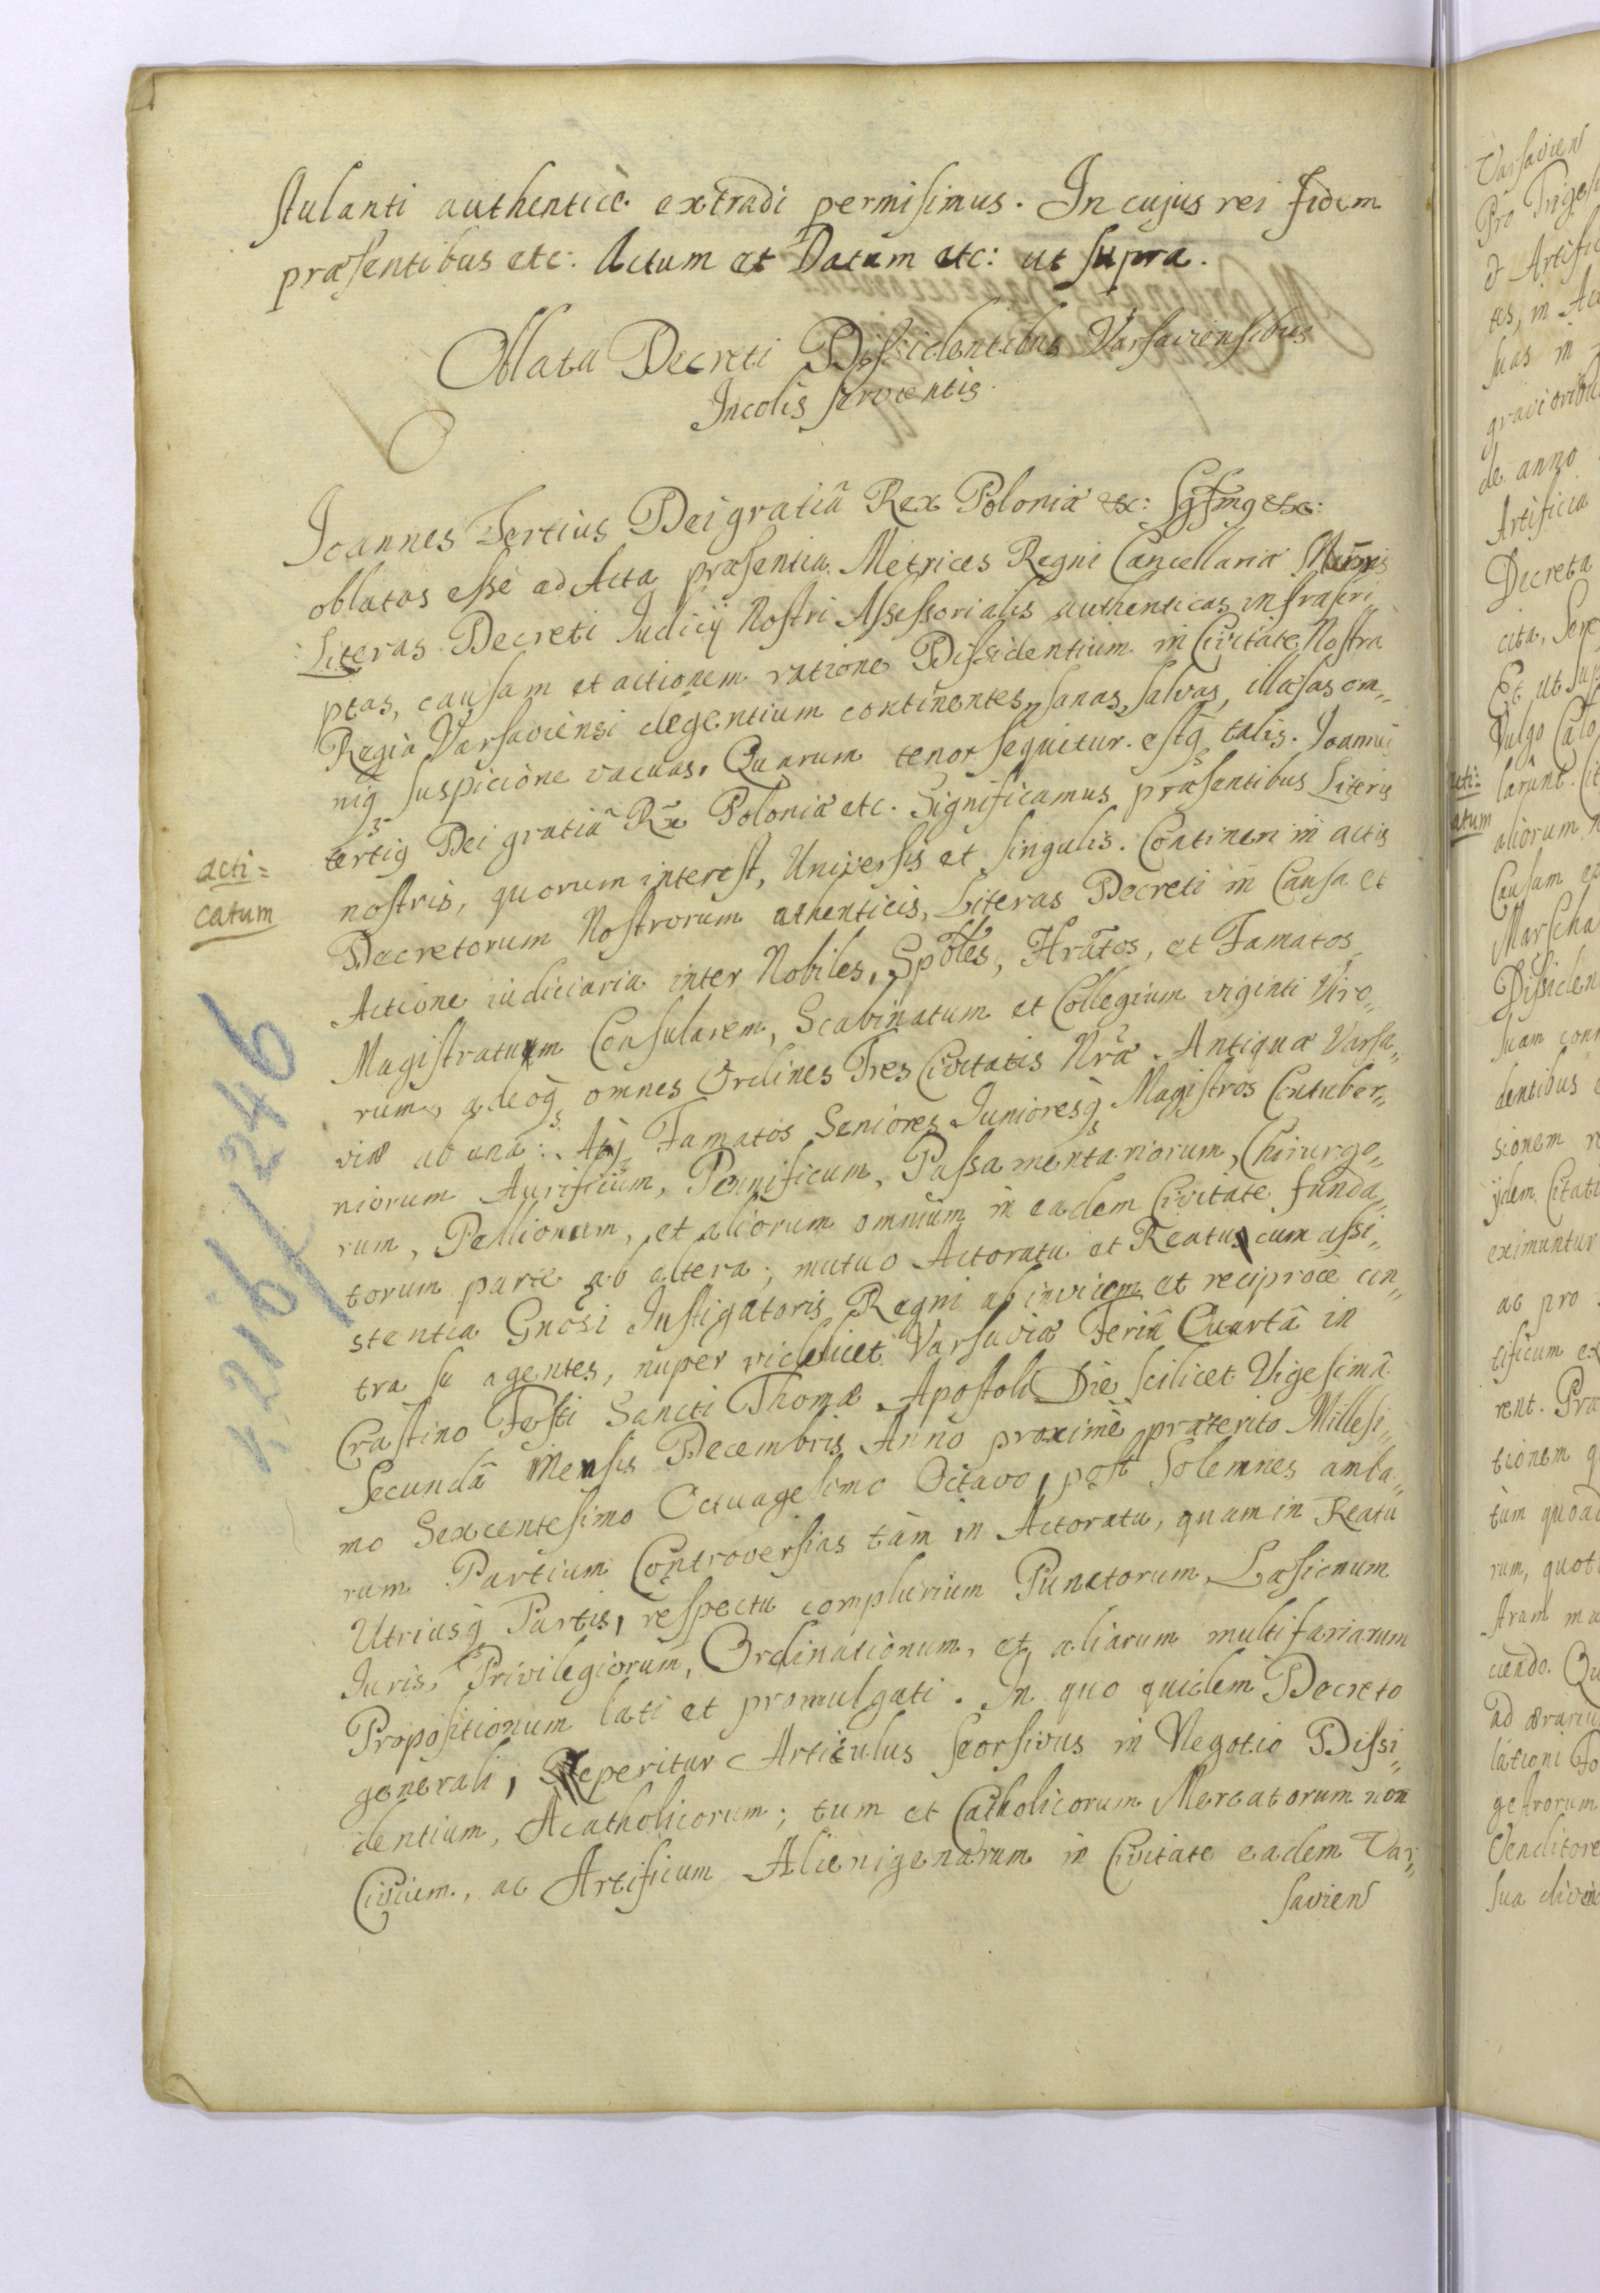 stulanti authenticè extradi permisimus. In cujus rei fidem
præsentibus etc: Actum et Datum etc: ut supra.
Oblata Decreti Dissidentibus Varsaviensibus
Incolis servientis.
Joannes Tertius Dei gratiâ Rex Poloniæ etc: etc:
oblatas esse ad Acta præsentia Metrices Regni Cancellariæ
Literas Decreti Judicij Nostri Assessorialis authenticas infrascri
ptas, causam et actionem ratione Dissidentium in Civitate Nostra
Regia Varsaviensi degentium continentes, sanas, salvas, illæsas om„
niq suspicione vacuas. Quarum tenor sequitur estq talis. Joannes
tertiq Dei gratiâ Rx Poloniæ etc. Significamus præsentibus Literis
acti=
catum
nostris, quorum interest, Universis et singulis. Contineri in actis
Decretorum Nostrorum athenticis, Literas Decreti in Causa et
Actione iudiciaria inter Nobiles, Spbles, Hratos, et Famatos
Magistratum Consularem, Scabinatum et Collegium viginti Viro„
rum, adeoq omnes Ordines Tres Civitatis Nræ Antiquæ Varsa„
viæ ab una: Atq Famatos Seniores Junioresq Magistros Contuber„
niorum Aurificum, Pannificum, Passamentariorum, Chirurgo„
rum, Pellionum, et aliorum omnium in eadem Civitate funda„
torum parte ab altera; mutuo Actoratu et Reatu cum assi„
stentia Gnosi Instigatoris Regni ab invicem et reciproce con
tra se agentes, nuper videlicet Varsaviæ Feriâ Quartâ in
Crastino Festi Sancti Thomæ Apostoli Die scilicet Vigesimâ
Secundâ Mensis Decembris Anno proximè præterito Millesi„
mo Sexcentesimo Octuagesimo Octavo, post Solemnes amba„
rum Partium Controversias tàm in Actoratu, quam in Reatu
Utriusq Partis, respectu complurium Punctorum Læsionum
Juris, Privilegiorum, Ordinationum, et aliarum multifariarum
Propositionum lati et promulgati. In quo quidem Decreto
generali, Reperitur Articulus seorsivus in Negotio Dissi„
dentium, Acatholicorum; tum et Catholicorum Mercatorum non
Civium, ac Artificum Alienigenarum in Civitate eadem Var„
savien
Varsavien
de anno
Artificia
Decreta
Vulgo
aliorum
Causam
dentibus
sionem
eximuntur
ac pro
rent.
tionem
rum, quot
cuendo.